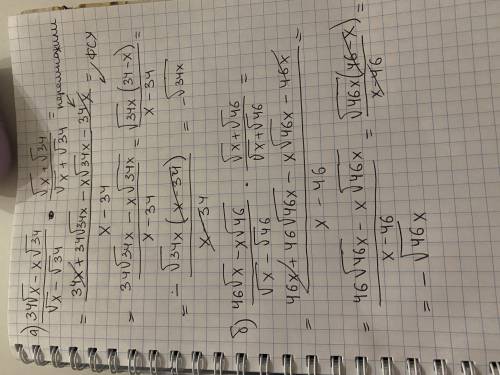 а) (34√x − x√34)/(√x − √34) · (√x + √34)/(√x + √34) = перемножаем
= (34x + 34√34x − x√34x − 34x)/(x − 34) = ФСУ
= (34√34x − x√34x)/(x − 34) = (√34x (34 − x))/(x − 34) =
= − (√34x (x − 34))/(x − 34) = −√34x
б) (46√x − x√46)/(√x − √46) · (√x + √46)/(√x + √46) =
= (46x + 46√46x − x√46x − 46x)/(x − 46)
= (46√46x − x√46x)/(x − 46) = (√46x (46 − x))/(x − 46) =
= −√46x